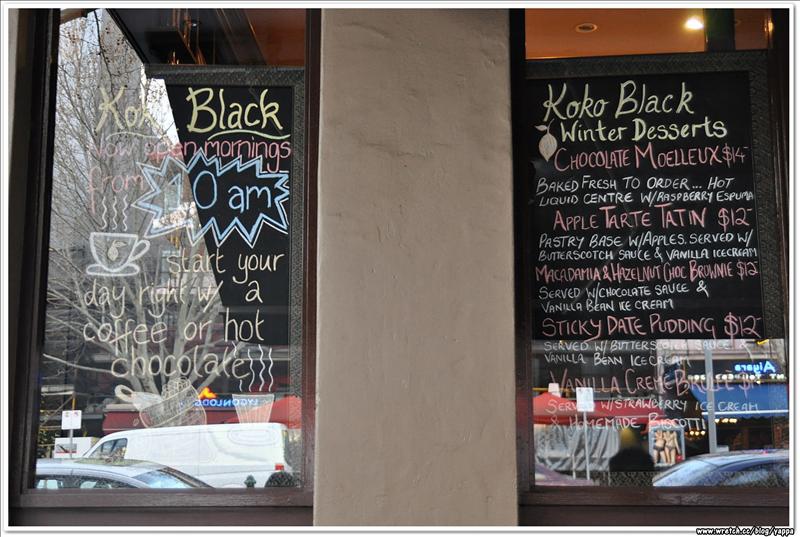 Koko Black
now open mornings
from 10 am
start your
day right w/ a
coffee or hot
chocolate
LYGON LODG
Koko Black
Winter Desserts
CHOCOLATE MOELLEUX $14-
BAKED FRESH TO ORDER... HOT
LIQUID CENTRE W/RASPBERRY ESPUMA
APPLE TARTE TATIN $12-
PASTRY BASE W/APPLES. SERVED W/
BUTTERSCOTCH SAUCE & VANILLA ICECREAM
MACADAMIA & HAZELNUT CHOC BROWNIE $12-
SERVED W/CHOCOLATE SAUCE &
VANILLA BEAN ICE CREAM
STICKY DATE PUDDING $12-
SERVED W/ BUTTERSCOTCH SAUCE
VANILLA BEAN ICE CREAM
VANILLA CREME BRULEE
SERVED W/STRAWBERRY ICE CREAM
& HOMEMADE BISCOTTI
www.wretch.cc/blog/yappa